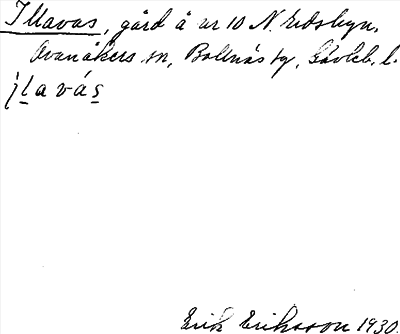 Illavas, gård å nr 10 N. Edsbyn,
Ovanåkers sn, Bollnäs fg, Gävleb. l.
i̯l̲a v á s̲
Erik Eriksson 1930.